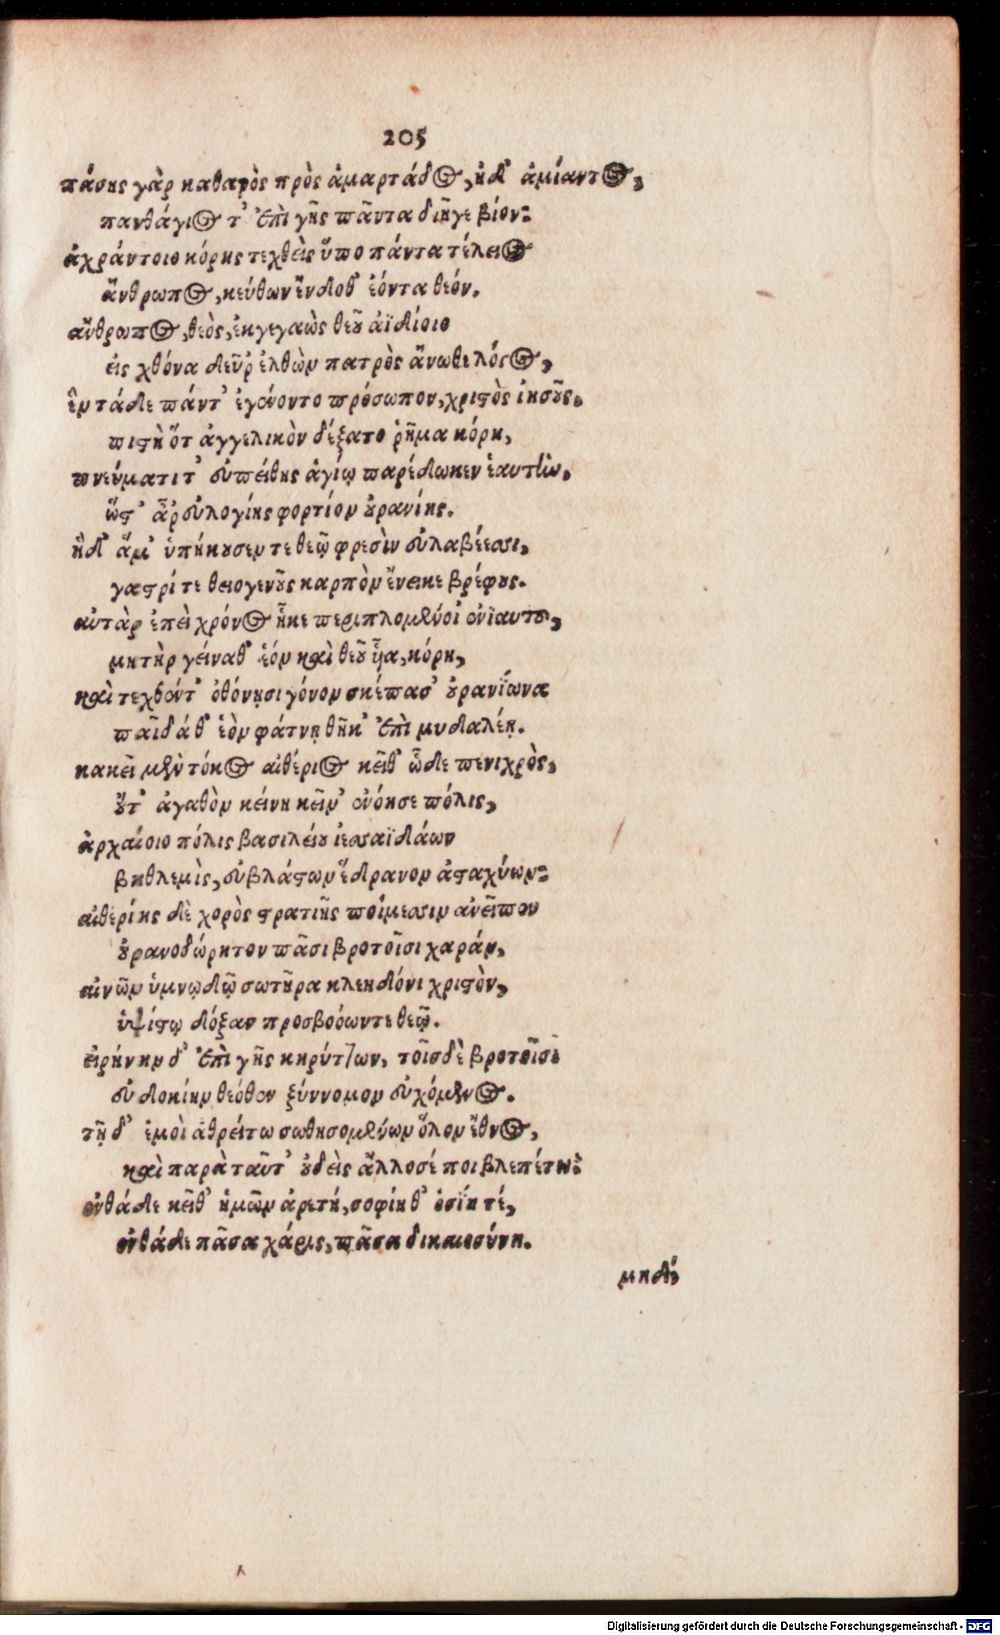 205
πάσης γὰρ καθαρὸς πρὸς ἁμαρτάδος, ἠδ' ἀμίαντος,
πανθάγιος τ' ἐπὶ γῆς πᾶντα διῆγε βίον:
ἀχράντοιο κόρης τεχθεὶς ὕπο πάντα τέλειος
ἄνθρωπος, κεύθων ἔνδοθ' ἐόντα θεόν.
ἄνθρωπος, θεὸς, ἐκγεγαὼς θεοῦ ἀϊδίοιο
εἰς χθόνα δεῦρ' ἐλθὼν πατρὸς ἄνωθεν
ἓν τάδε πάντ' ἐγένοντο πρόσωπον, χριστὸς ἰησοῦς.
πιστὴ ὅτ' ἀγγελικὸν δέξατο ῥῆμα κόρη,
πνεύματι τ' εὐπείθης ἁγίῳ παρέδωκεν ἑαυτὴν,
ὥστ' ἆρ' εὐλογίης φορτίον οὐρανίης.
ἠδ' ἅμ' ὑπήκουσεν τε θεῷ φρεσὶν εὐλαβέεσσι,
γαστρί τε θειογενοῦς καρπὸν ἔνεικε βρέφους.
αὐτὰρ ἐπεὶ χρόνος ἧκε περιπλομένου ἐνιαυτοῦ,
μητὴρ γείναθ' ἑόν καὶ θεοῦ ἷα, κόρη,
καὶ τεχθέντ' ὀθόνῃσι γόνον σκέπασ' οὐρανίωνα
παῖδά θ' ἑὸν φάτνῃ θῆκ' ἐπὶ μυδαλέῃ.
κακεῖ μὲν τόκος αἰθέριος κεῖθ' ὧδε πενιχρὸς,
οὔτ' ἀγαθὸν κείνη κεῖν' ἐνόησε πόλις,
ἀρχαίοιο πόλις βασιλέου ἰεσσαϊδάων
βηθλεμὶς, εὐβλάστων ἕδρανον ἀσταχύων:
αἰθερίης δὲ χορὸς στρατιῆς ποίμεσσιν ἀνεῖπον
οὐρανοδώρητον πᾶσι βροτοῖσι χαράν,
αἰνῶν ὑμνῳδῷ σωτῆρα κλεηδόνι χριστὸν,
ὑψίστῳ δόξαν προσβοόωντε θεῷ.
εἰρήνην δ' ἐπὶ γῆς κηρύττων, τοῖσδὲ βροτοῖσι
εὐδοκίην θεόθεν ξύννομον εὐχόμενος.
τῇ δ' ἐμοὶ ἀθρείτω σωθησομένων ὅλον ἔθνος,
καὶ παρὰ ταῦτ' οὐδεὶς ἄλλοσέ ποι βλεπέτω:
ἐνθάδε κεῖθ' ἡμῶν ἀρετή, σοφίη θ' ὁσίη τέ,
ἐνθάδε πᾶσα χάρις, πᾶσα δικαιοσύνη.
μηδ',